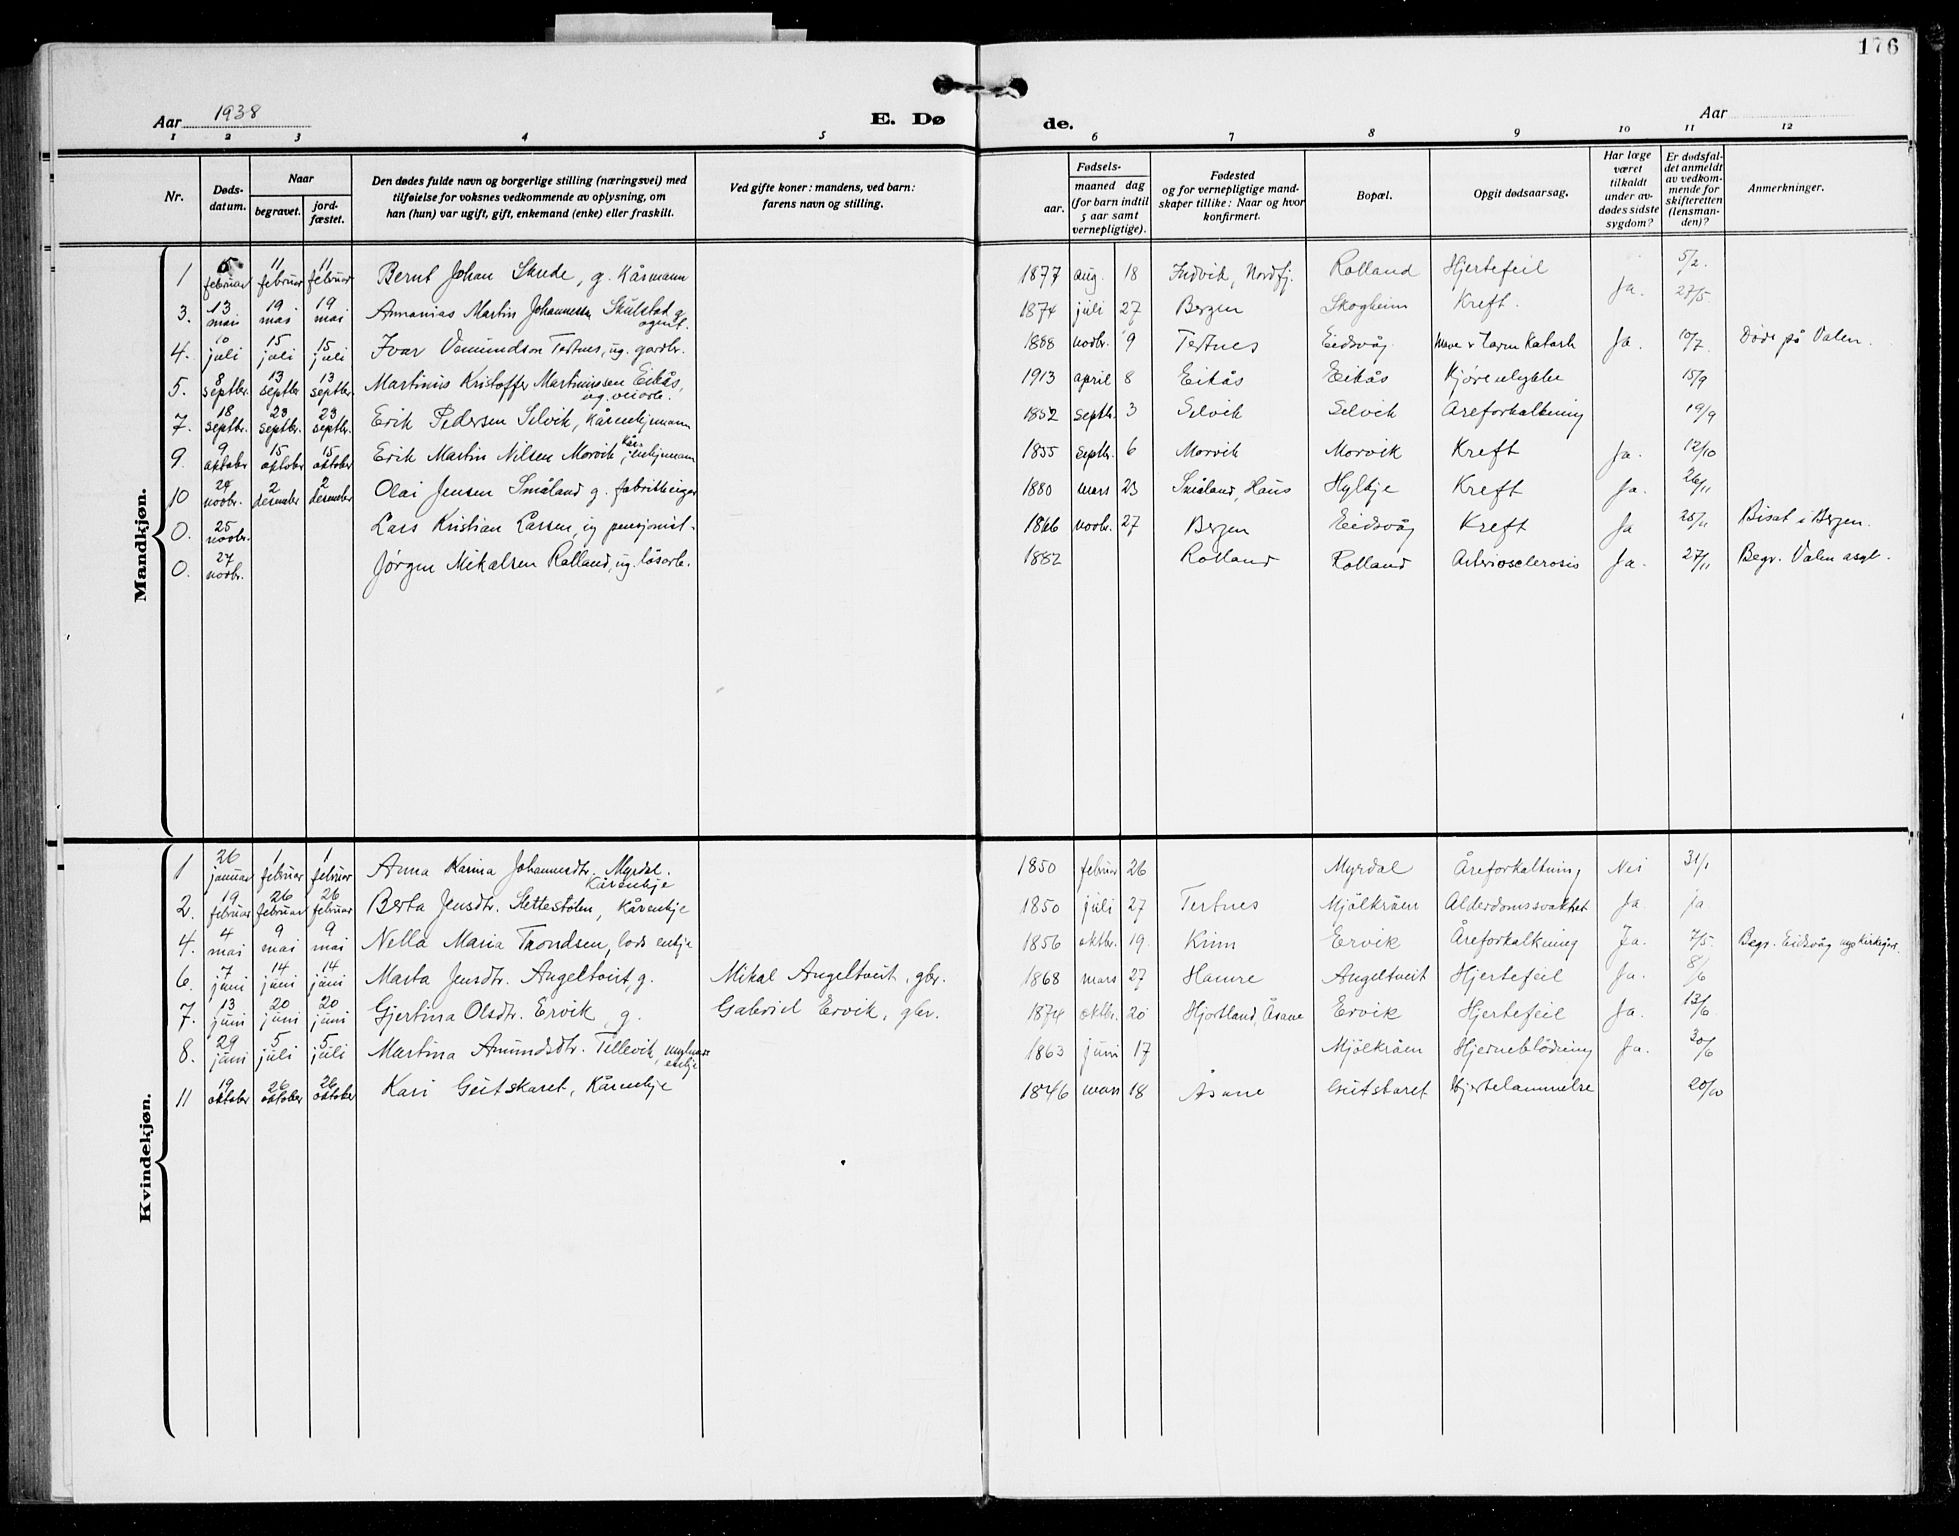 176
Aar 1938 E. Dø de. Aar
1 2 3 4 5 6 7 8 9 10 11 12
Nr. Døds-datum. Naar begravet. jord-fæstet. Den dødes fulde navn og borgerlige stilling (næringsvei) med tilføielse for voksnes vedkommende av oplysning, om han (hun) var ugift, gift, enkemand (enke) eller fraskilt. Ved gifte koner: mandens, ved barn: farens navn og stilling. Fødsels- aar. maaned dag (for barn indtil 5 aar samt vernepligtige). Fødested og for vernepligtige mand-skaper tillike: Naar og hvor konfirmert. Bopæl. Opgit dødsaarsag. Har læge været tilkaldt under av-dødes sidste sygdom? Er dødsfal-det anmeldt av vedkom-mende for skifteretten (lensman-den)? Anmerkninger.
Mandkjøn.
1 5 februar 11 februar 11 februar Bernt Johan Skude, g. Kåsmann 1877 aug. 18 Indvik, Nordfj. Rolland Hjertefeil 5/2.
3. 13 mai 19 mai 19 mai Annanias Martin Johannessen Skulstad g. agent. 1874 juli 27 Bergen Skogheim Kreft. Ja. 27/5.
4. 10 juli 15 juli 15 juli Ivar Vemundson Tertnes, ug. gardbr. 1888 novbr. 9 Tertnes Eidsvåg Mave & tarm Katarh Ja. 10/7. Døde på Valen.
5. 8 septbr. 13 septbr 13 septbr. Martinus Kristoffer Martinussen Eikås, ug. veiarb. 1913 april 8 Eikås Eikås Kjøreulykke 15/9
7. 18 septbr. 23 septbr. 23 septbr. Erik Pedersen Selvik, Kårenkjemann 1852 septbr. 3 Selvik Selvik Åreforkalkning 19/9
9. 9 oktober 15 oktober 15 oktober Erik Martin Nilsen Morvik, kårenkjemann 1855 septbr. 6 Morvik Morvik Kreft Ja. 12/10
10 24 novbr. 2 desember 2 desember Olai Jensen Småland g. fabrikkeigar 1880 mars 23 Småland, Haus Hylkje Kreft Ja. 26/11
0. 25 novbr. Lars Kristian Larsen, ug pensjonist 1866 novbr. 27 Bergen Eidsvåg Kreft Ja 25/11 Bisat i Bergen.
0. 27 novbr. Jørgen Mikalsen Rolland, ug. løsarb. 1882 Rolland Rolland Arteriosclerosis Ja. 27/11 Begr. Valen asyl.
Kvindekjøn.
1 26 januar 1 februar 1 februar Anna Karina Johannesdtr. Myrdal. Kårenkje 1850 februar 26 Myrdal Åreforkaltning Nei 31/1
2. 19 februar 26 februar 26 februar Berta Jensdtr. Slettestølen, Kårenkje 1850 juli 27 Tertnes Mjølkråen Alderdomssvakhet Ja. ja.
4. 4 mai 9 mai 9 mai Nella Maria Trondsen, lods enkje 1856 oktbr. 19. Kinn Ervik Åreforkalkning Ja. 7/5. Begr. Eidsvåg nye Kirkegård.
6. 7 juni 14 juni 14 juni Marta Jensdtr. Angeltveit, g. Mikal Angeltveit, gbr. 1868 mars 27 Hamre Angeltveit Hjertefeil Ja. 8/6
7. 13 juni 20 juni 20 juni Gjertina Olsdtr. Ervik, g. Gabriel Ervik, gbr. 1874 oktbr. 20 Hjortland, Åsane Ervik Hjertefeil Ja. 13/6
8. 29 juni 5 juli 5 juli Martina Amundsdtr. Tellevik, enkje 1863 juni 17 Mjølkråen Hjerneblødning Ja. 30/6
11 19 oktober 26 oktober 26 oktober Kari Geitskaret, Kårenkje 1846 mars 18 Åsane Geitskaret Hjertelammelse 20/10